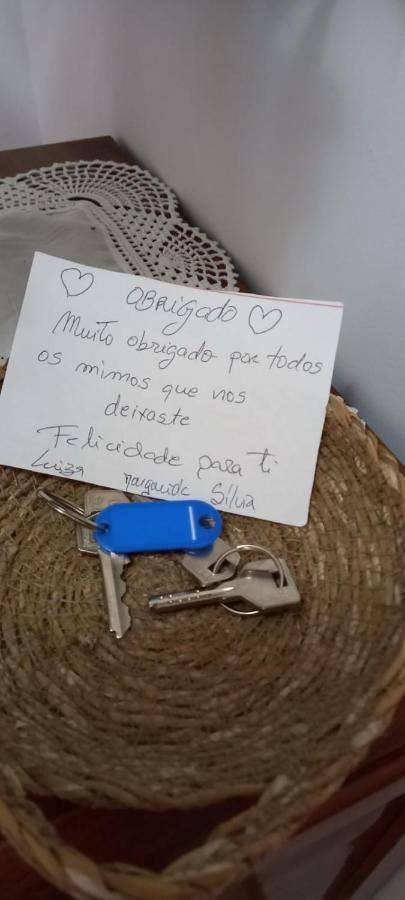 OBRIGADO
Muito obrigado por todos
os mimos que nos
deixaste
Felicidade para ti
Luiza Margarida Silvia